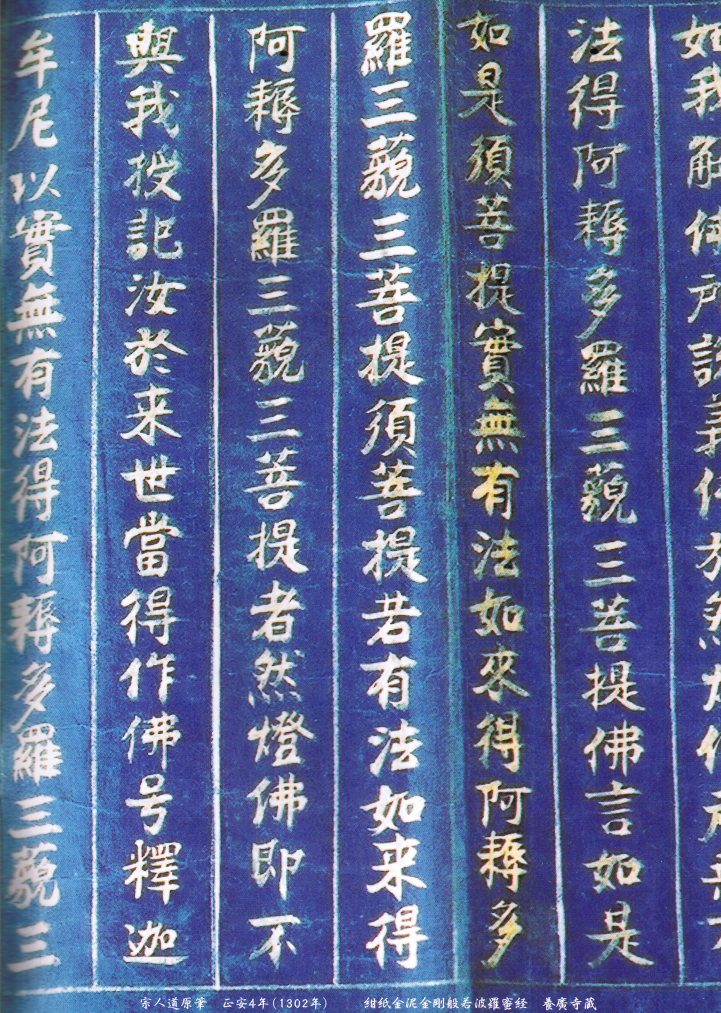 如我解佛所說義佛於然燈佛所無有
法得阿耨多羅三藐三菩提佛言如是
如是須菩提實無有法如來得阿耨多
羅三藐三菩提須菩提若有法如来得
阿耨多羅三藐三菩提者然燈佛即不
與我授記汝於来世當得作佛号釋迦
牟尼以實無有法得阿耨多羅三藐三
宗人道原筆 正安4年(1302年) 紺紙金泥金剛般若波羅蜜経 養廣寺蔵